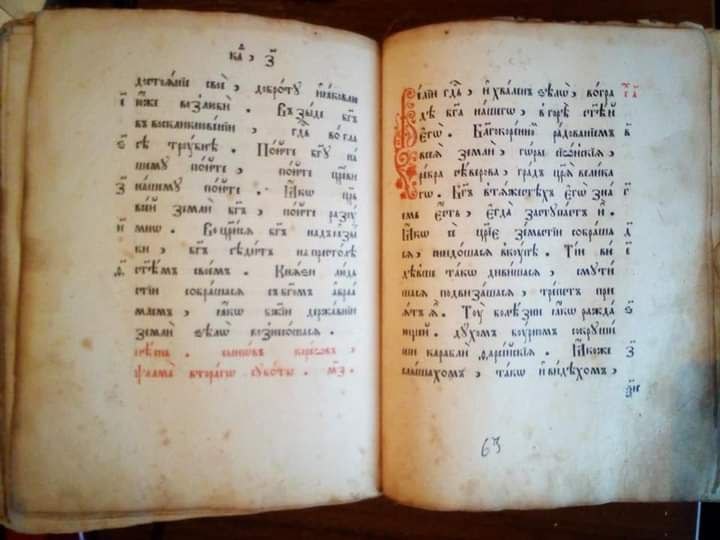 каѳ, з҃
достоѧніе своѐ, доброту̀ іа҆ковлю
ю҆же возлюбѝ. Взы́де бг҃ъ
въ воскликновеніи, гдⷭ҇ь во гла
сѣ трубнѣ. По́йте бг҃у на
шему по́йте, по́йте цр҃ви
нашему по́йте. Ꙗ҆́кѡ цр҃ь
всеѝ землѝ бг҃ъ, по́йте разꙋ
мнѡ. Воцр҃исѧ бг҃ъ надъ ꙗ҆зы
ки, бг҃ъ сѣди́тъ на престо́лѣ
ст҃ѣмъ свое́мъ. Кнѧ́зи лю́д
стіи собра́шасѧ съ бг҃омъ а҆враа
млемъ, ꙗ҆́кѡ бж҃іи держа́вніи
землѝ ѕѣлѡ̀ возне́сошасѧ.
пѣснь. сынѡ́въ коре́ѡвъ,
ѱалма̀ вторагѡ суббо́ты. м҃з.
Ве́лій гдⷭ҇ь, и҆ хвале́нъ ѕѣлѡ̀, во гра
дѣ бг҃а на́шегѡ, в горѣ̀ ст҃ѣй
є҆гѡ̀. Благокоренны́й ра́дованіемъ
всеѧ̀ землѝ, го́ры сіѡ́нскіѧ,
ре́бра сѣ́верова, гра́дъ цр҃ѧ̀ вели́ка
гѡ. Бг҃ъ в тѧ́жестехъ є҆гѡ̀ зна́
емь є҆́сть, є҆гда̀ заступа́етъ и҆̀.
Ꙗ҆́кѡ се̑ цр҃іе земсті́и собра́ша
сѧ, снидо́шасѧ вкупѣ. Ті́и ви́
дѣвше та́кѡ диви́шасѧ, смути́
шасѧ подвиза́шасѧ, тре́петъ прі
ѧ́тъ ѧ҆̀. Ту̀ болѣ́зни ꙗ҆́кѡ ражда́
ющей. ду́хомъ бу́рнымъ сокруши́
ши корабли̑ ѳарсі́йскіѧ. Ꙗ҆́коже
слы́шахомъ, та́кѡ и҆ ви́дѣхомъ,
63